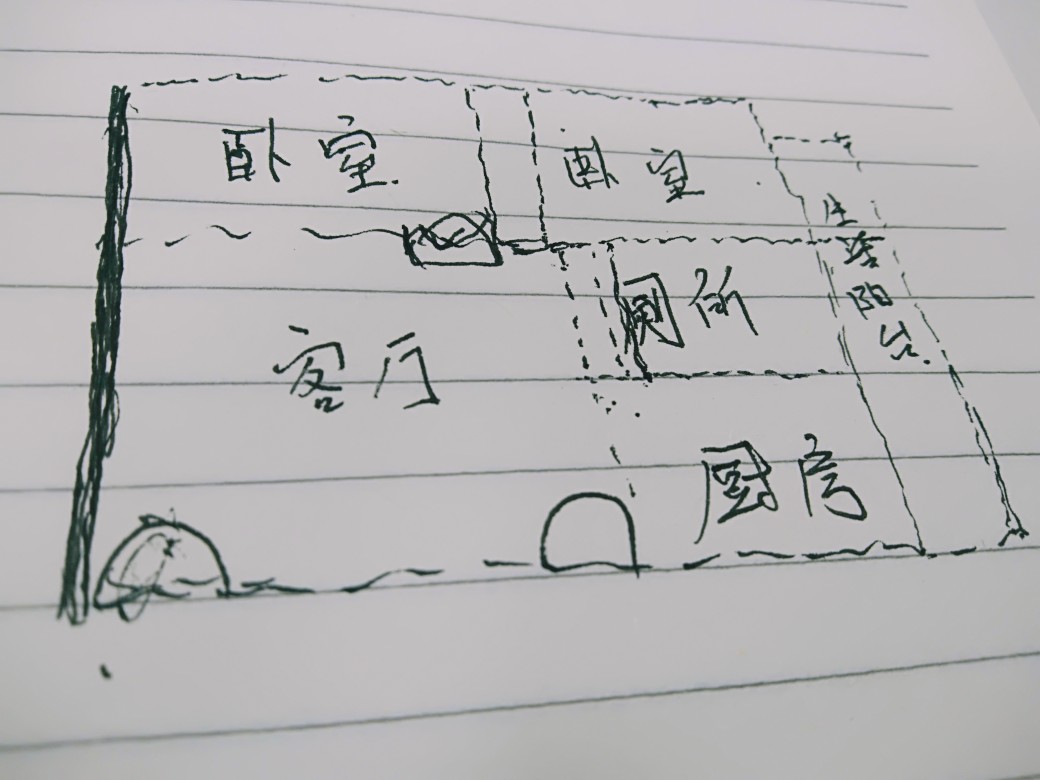 卧室
卧室
生活阳台
厕所
客厅
厨房